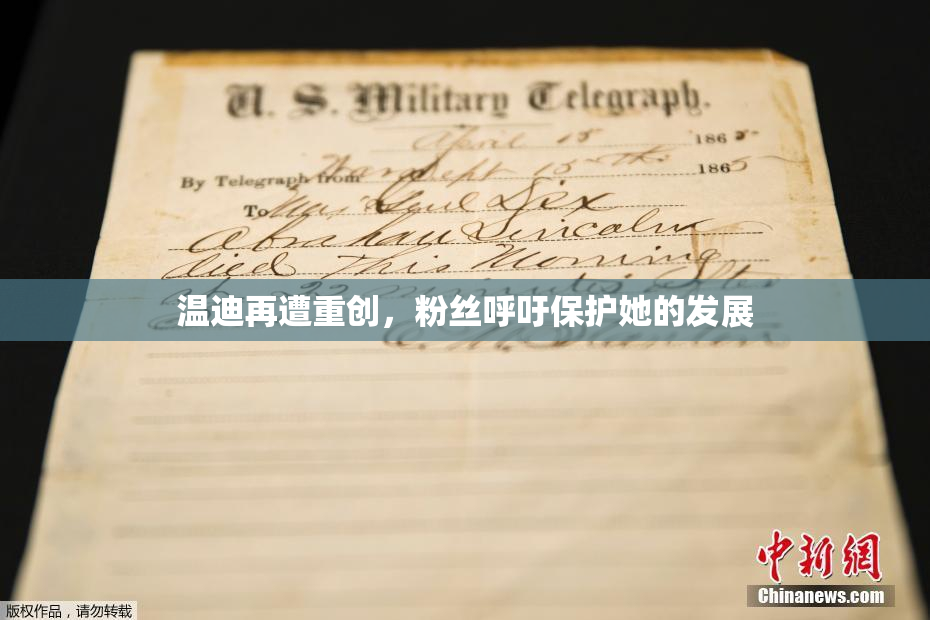 U. S. Military Telegraph.
April 15 1865
By Telegraph from War Dept 15th 1865
To Maj Genl Dix
Abraham Lincoln
died This Morning
at 22 minutes after
温迪再遭重创，粉丝呼吁保护她的发展
E. M. Stanton
中新网
Chinanews.com
版权作品，请勿转载